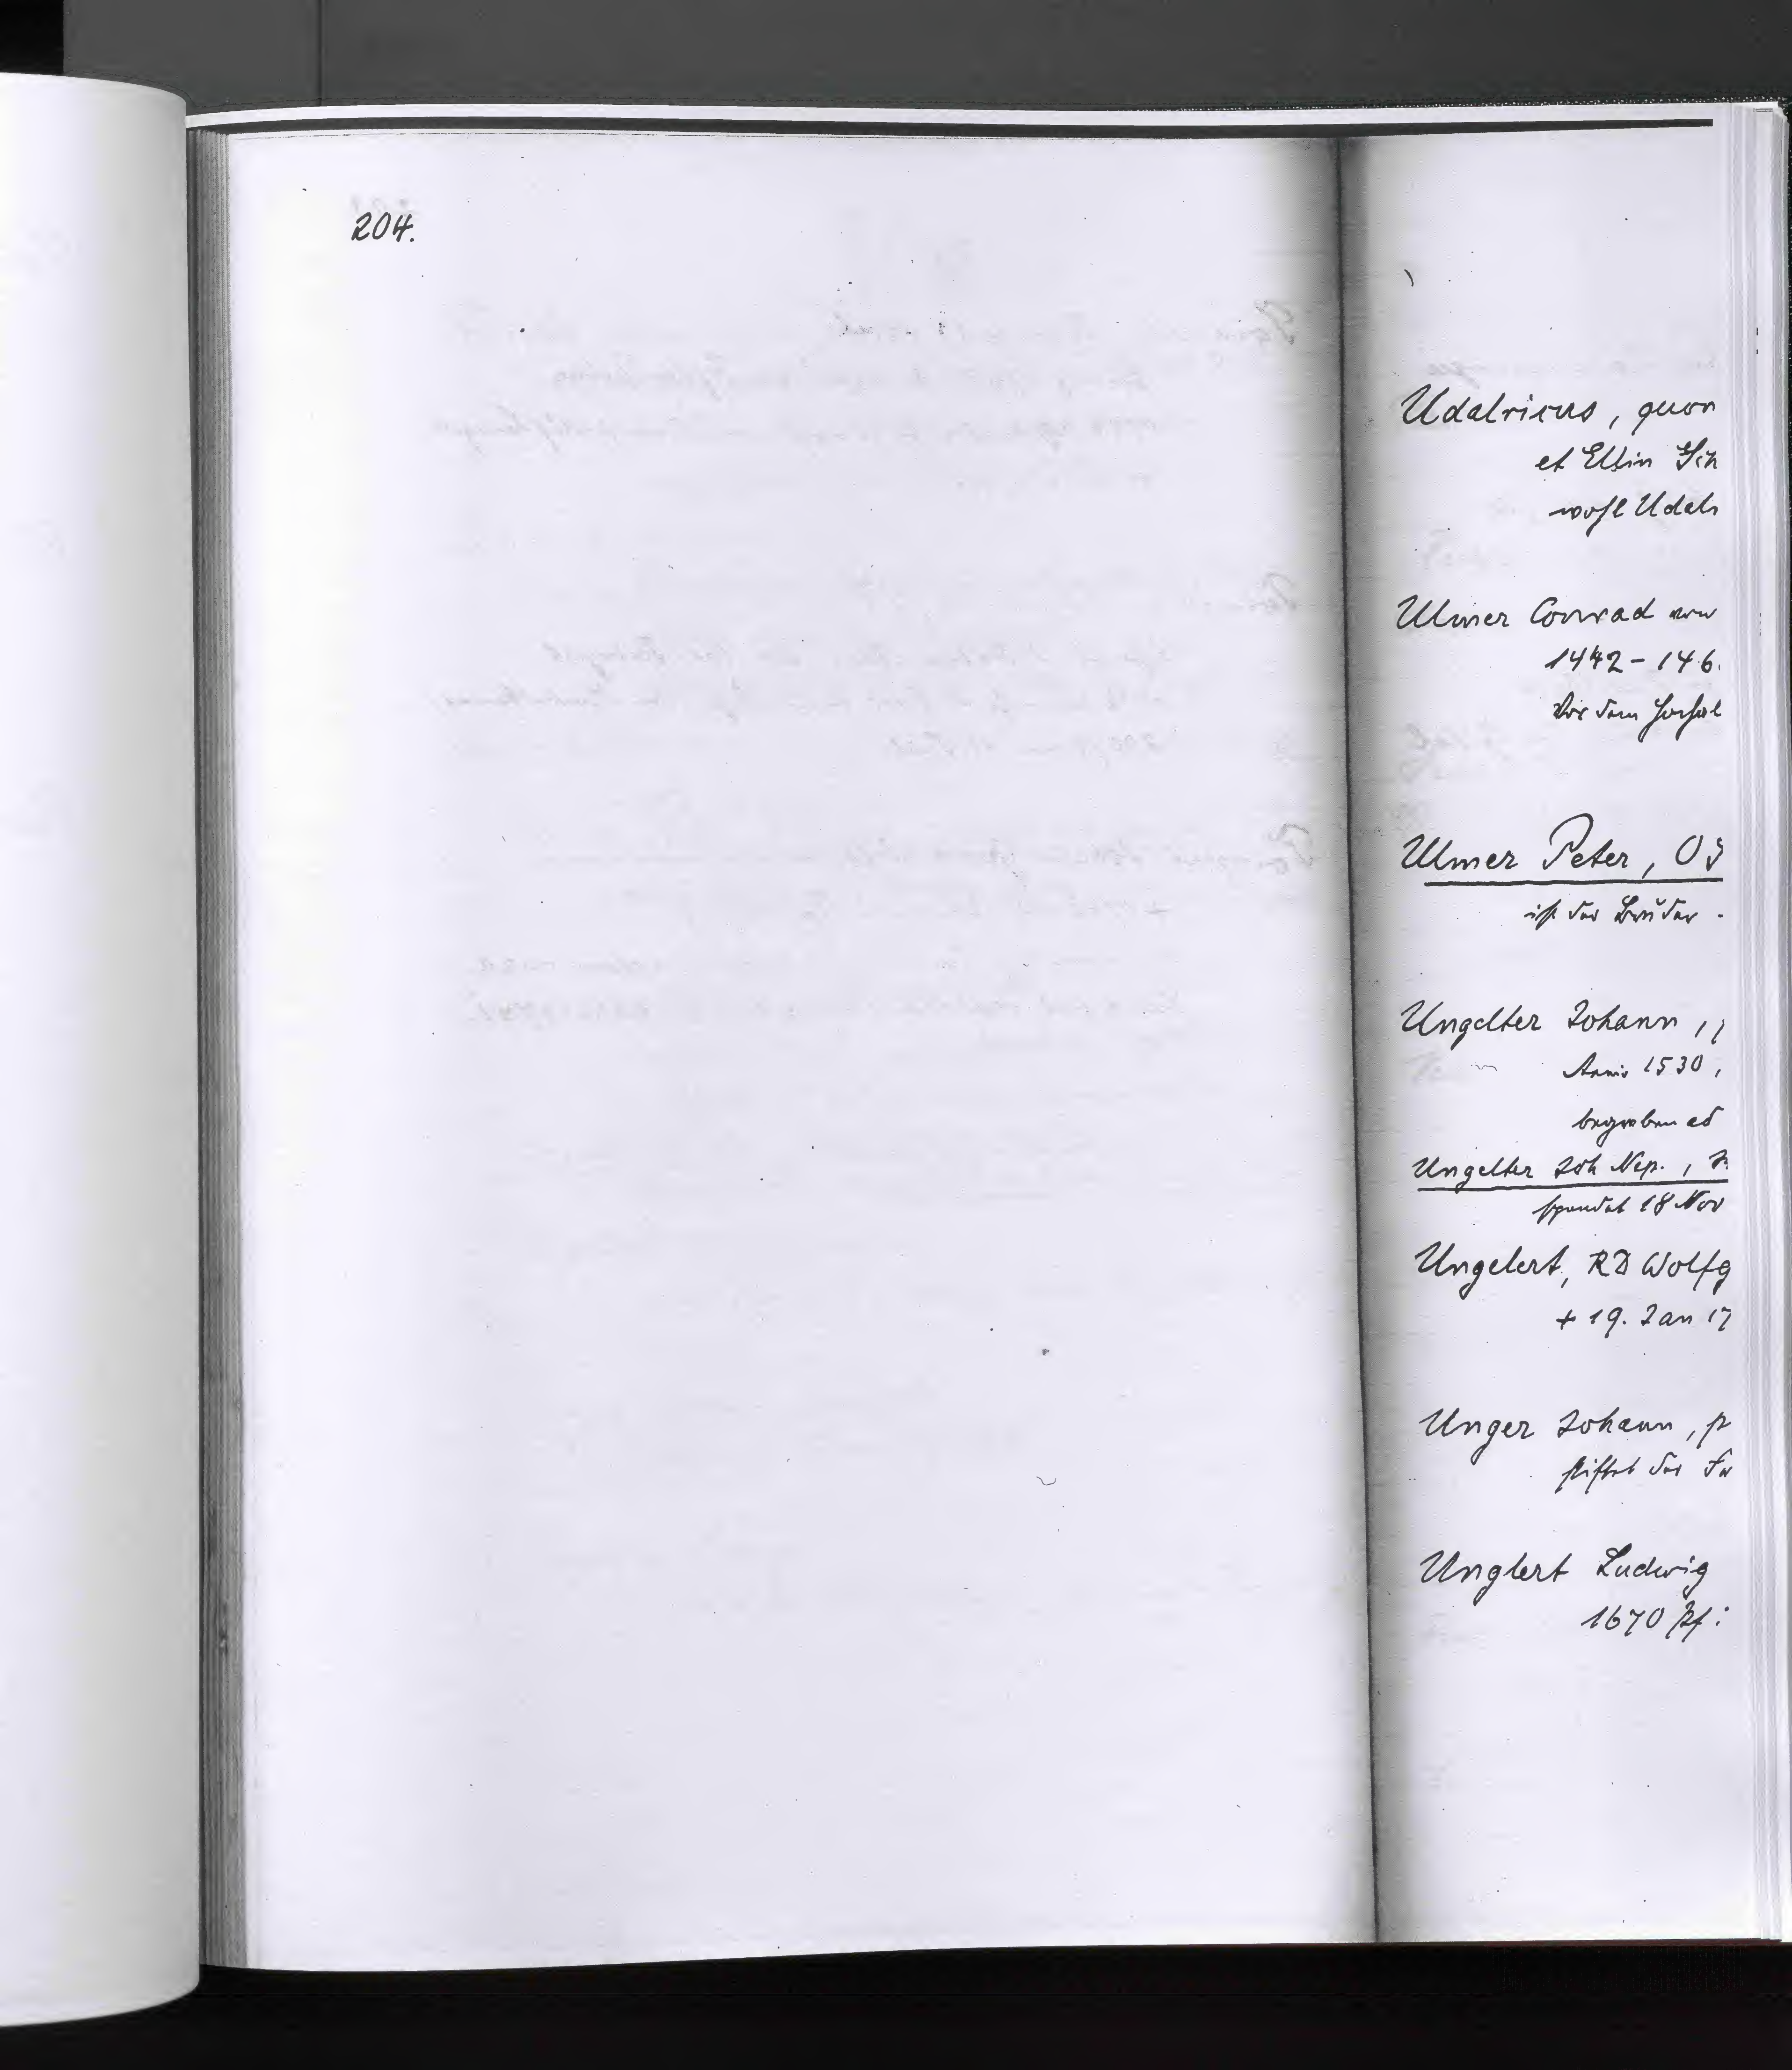 204.
Udalricus, quon
et Ellin
wohl Udalr
Ulmer Conrad
1442-146.
vor dem Hochal
Ulmer Peter, OS
ist der Bruder
Ungelter Johann,
Anno 1530,
begraben ad
Ungelter Joh Nep.,
spendet 18 Nov
Ungelert, RD Wolfg
+ 19. Jan 17
Unger Johann, p
stiftet der
Unglert Ludwig
1670 Pf: